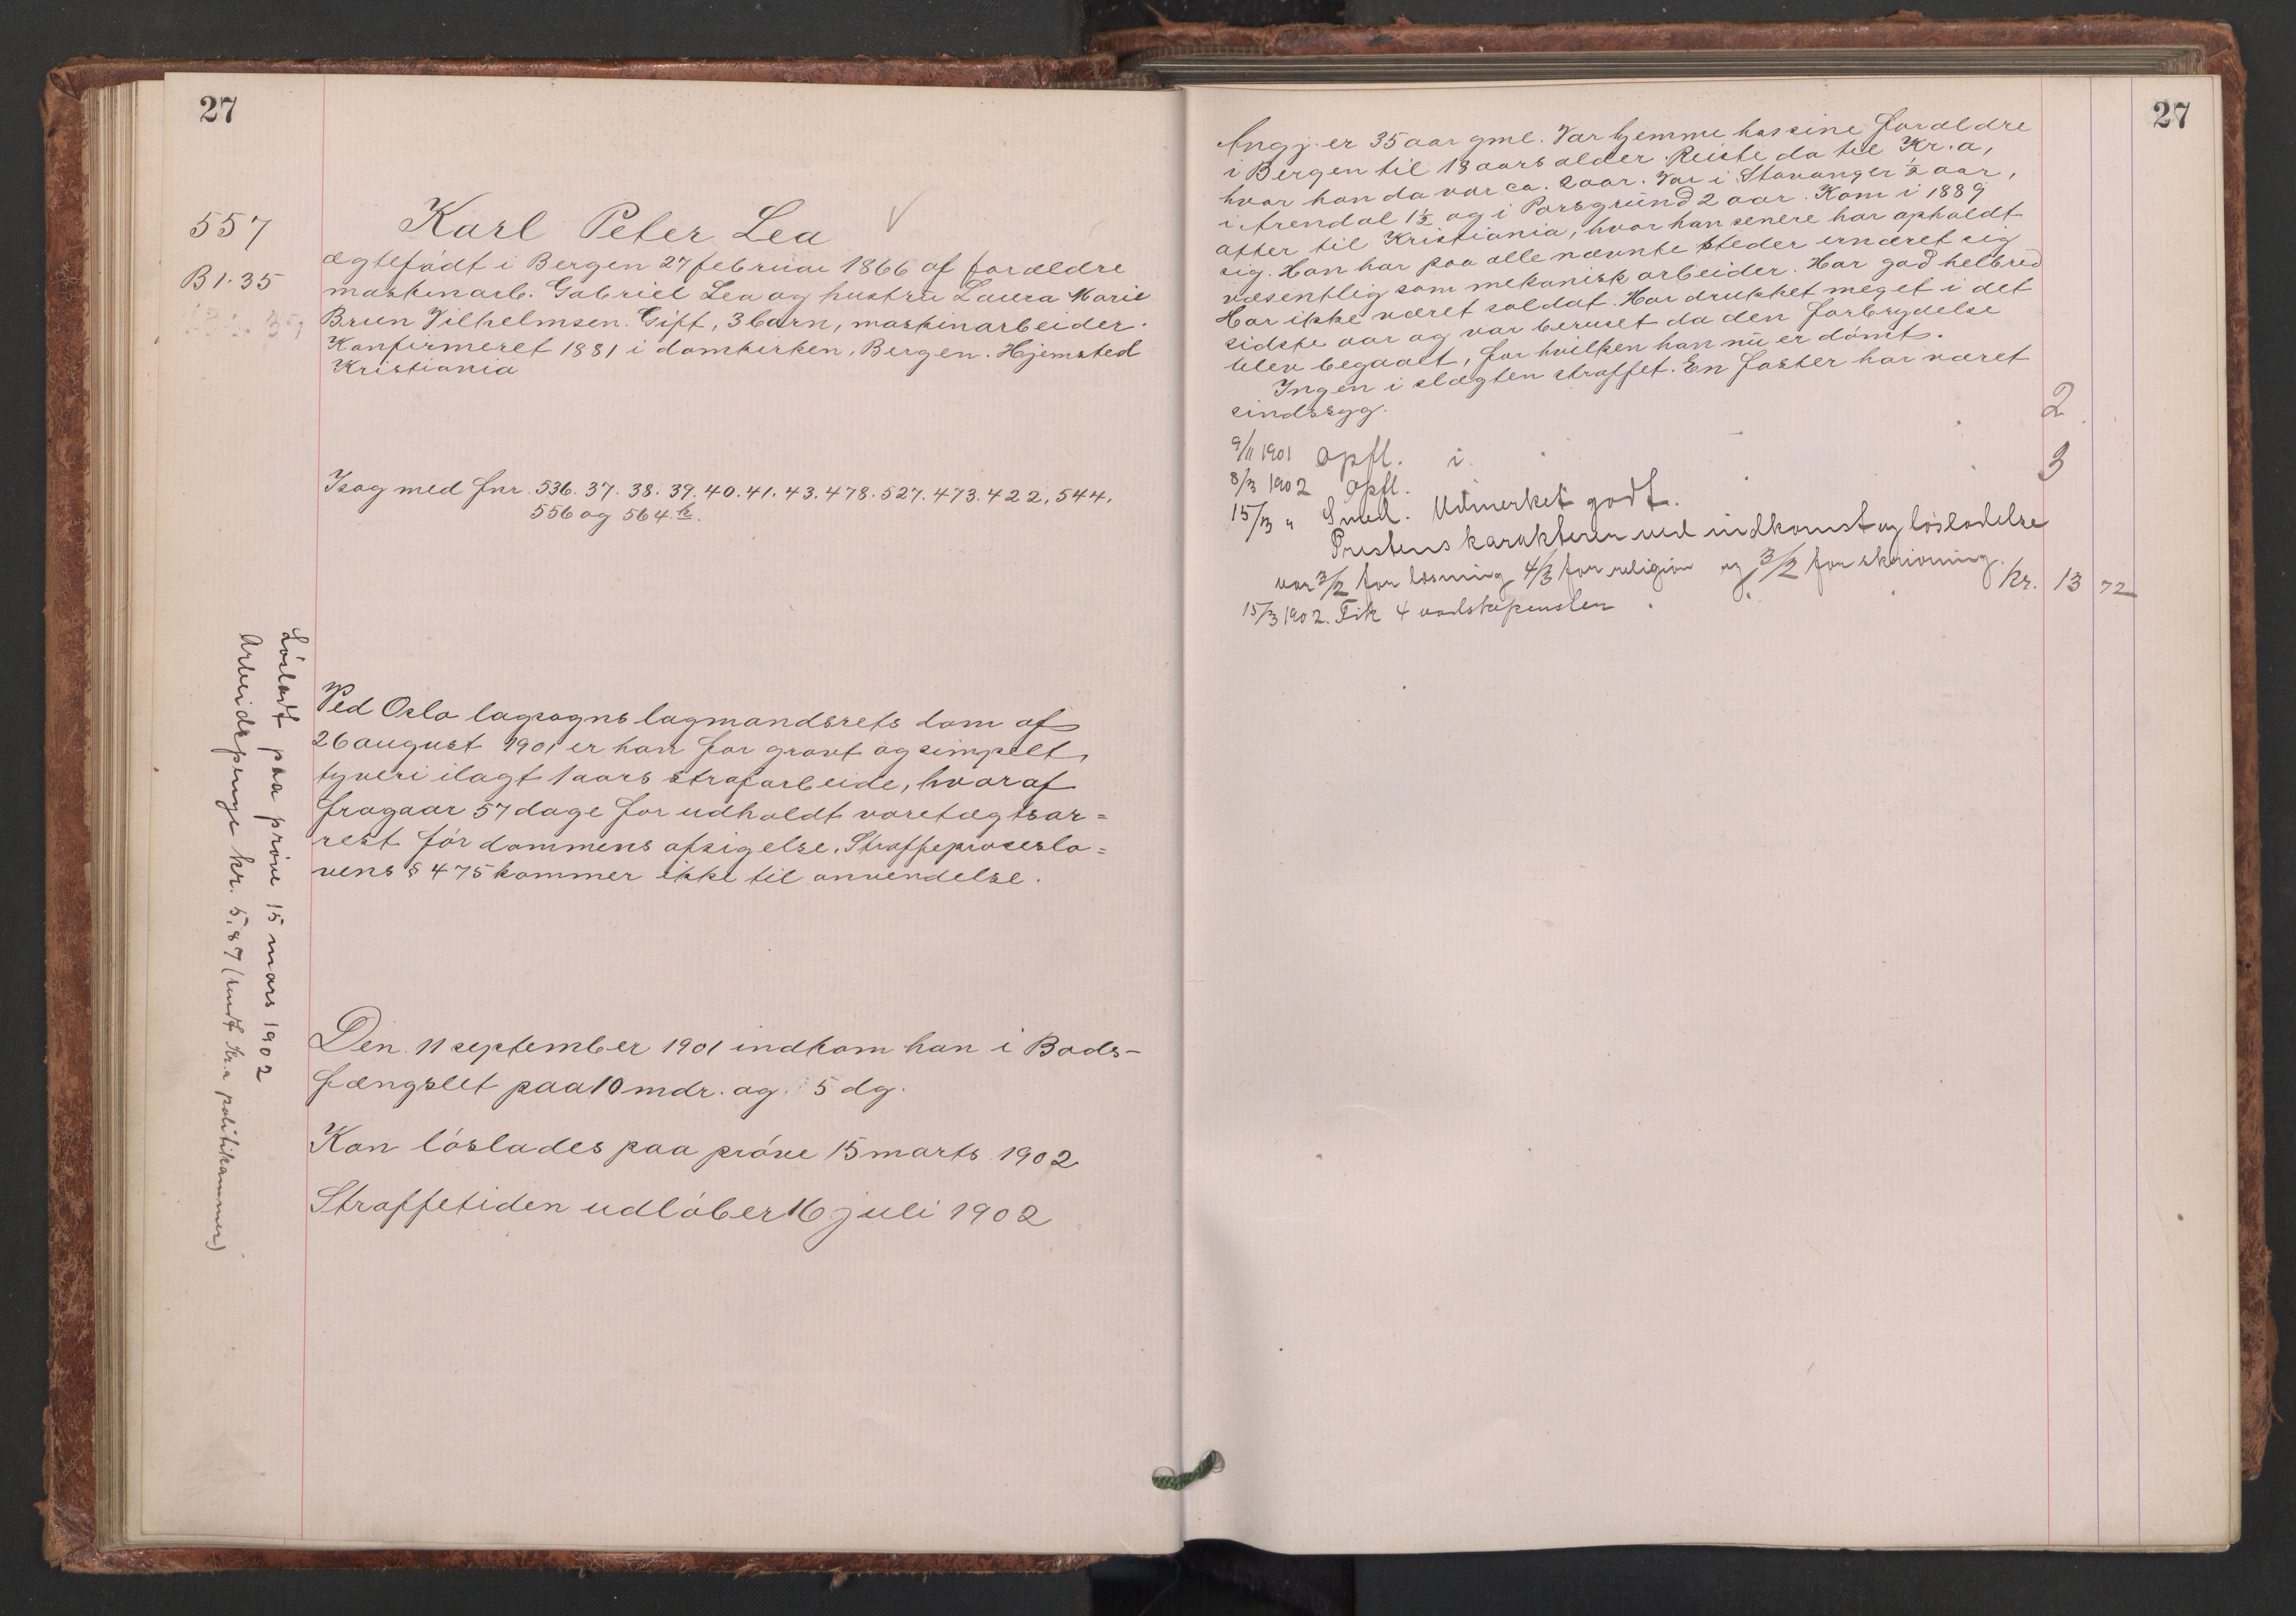 27
557
Karl Peter Lea
ægtefødt i Bergen 27 februar 1866 af forældre
B 1. 35
maskinarb. Gabriel Lea og hustru Laura Marie
Brun Vilhelmsen. Gift, 3 barn, maskinarbeider.
Konfirmeret 1881 i domkirken, Bergen. Hjemsted
Kristiania
I sag med fnr. 536. 37. 38. 39. 40. 41. 43. 478. 527. 473. 422, 544,
556 og 564 k.
Ved Oslo lagsogns lagmandsrets dom af
26 august 1901 er han for grovt og simpelt
tyveri ilagt 1 aars strafarbeide, hvoraf
fragaar 57 dage for udholdt varetægtsar=
rest før dommens afsigelse. Straffeproceslo=
vens § 475 kommer ikke til anvendelse.
Løsladt paa prøve 15 mars 1902
Arbeidspenge kr. 5,87 (sendt Kr.a politikammer)
Den 11 september 1901 indkom han i Bods-
fængslet paa 10 mdr. og 5 dg.
Kan løslades paa prøve 15 marts 1902
Straffetiden udløber 16 juli 1902
27
Angj. er 35 aar gml. Var hjemme hos sine forældre
i Bergen til 18 aars alder. Reiste da til Kr.a,
hvor han da var ca. 2 aar. Var i Stavanger ½ aar,
i Arendal 1½ og i Porsgrund 2 aar. Kom i 1889
atter til Kristiania, hvor han senere har opholdt
sig. Han har paa alle nævnte steder ernæret sig
væsentlig som mekanisk arbeider. Har god helbred
Har ikke været soldat. Har drukket meget i det
sidste aar og var beruset da den forbrydelse
blev begaaet, for hvilken han nu er dømt.
Ingen i slægten straffet. En faster har været
sindssyg.
2
9/11 1901 Opfl. i.
3
8/3 1902 Opfl.
15/3 " Smed. Udmerket godt.
Prestens karakterer ved indkomst og løsladelse
var 3/2 for læsning 4/3 for religion og 3/2 for skrivning.
Kr. 13 72
15/3 1902. Fik 4